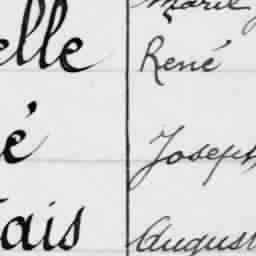 Marie
elle René
é Joseph
ais August